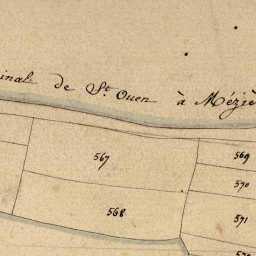 de St Ouen à
567
569
570
568
571